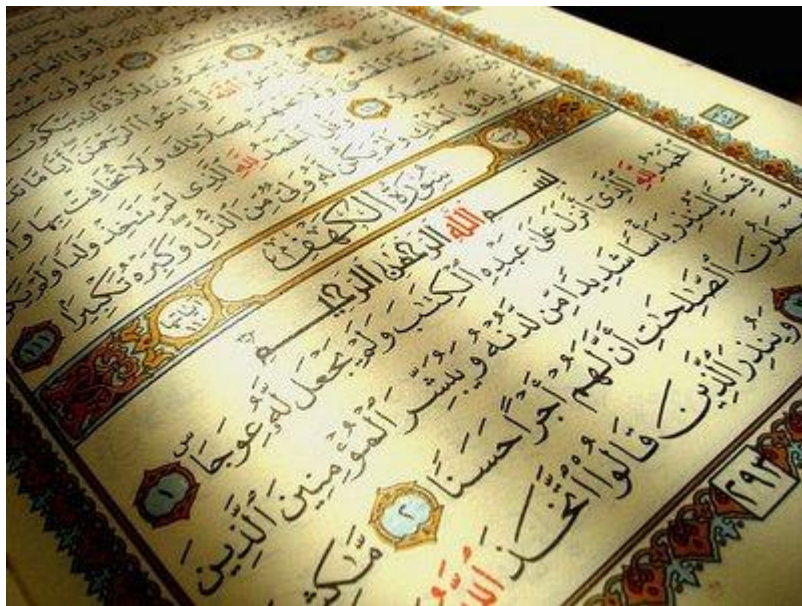 وَيَخِرُّونَ لِلْأَذْقَانِ يَبْكُونَ
ٱللَّهَ أَوِ ٱدْعُوا۟ ٱلرَّحْمَٰنَ أَيًّا مَّا
بِصَلَاتِكَ وَلَا تُخَافِتْ بِهَا
ٱلْحَمْدُ لِلَّهِ ٱلَّذِى لَمْ يَتَّخِذْ وَلَدًا وَلَمْ يَكُن
فِى ٱلْمُلْكِ وَلَمْ يَكُن لَّهُۥ وَلِىٌّ مِّنَ ٱلذُّلِّ وَكَبِّرْهُ تَكْبِيرًا ١١١
سُورَةُ الكَهْفِ
بِسْمِ ٱللَّهِ ٱلرَّحْمَٰنِ ٱلرَّحِيمِ
ٱلْحَمْدُ لِلَّهِ ٱلَّذِىٓ أَنزَلَ عَلَىٰ عَبْدِهِ ٱلْكِتَٰبَ وَلَمْ يَجْعَل لَّهُۥ عِوَجَا ۜ ١
قَيِّمًا لِّيُنذِرَ بَأْسًا شَدِيدًا مِّن لَّدُنْهُ وَيُبَشِّرَ ٱلْمُؤْمِنِينَ ٱلَّذِينَ
يَعْمَلُونَ ٱلصَّٰلِحَٰتِ أَنَّ لَهُمْ أَجْرًا حَسَنًا ٢ مَّٰكِثِينَ
وَيُنذِرَ ٱلَّذِينَ قَالُوا۟ ٱتَّخَذَ ٱللَّهُ
٢٩٣